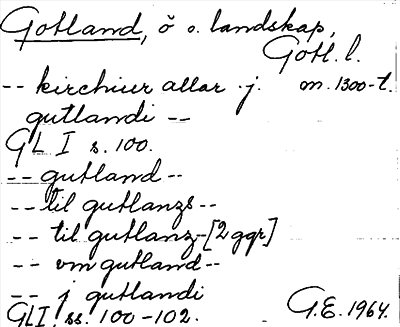 Gotland, ö o. landskap,
Gotl. l.
-- kirchiur allar j. m. 1300-t.
gutlandi --
GL I s. 100.
-- gutland --
-- til gutlanzs --
-- til gutlanz -- [2 ggr.]
-- vm gutland --
-- j gutlandi
GLI. ss. 100-102. G.E. 1964.